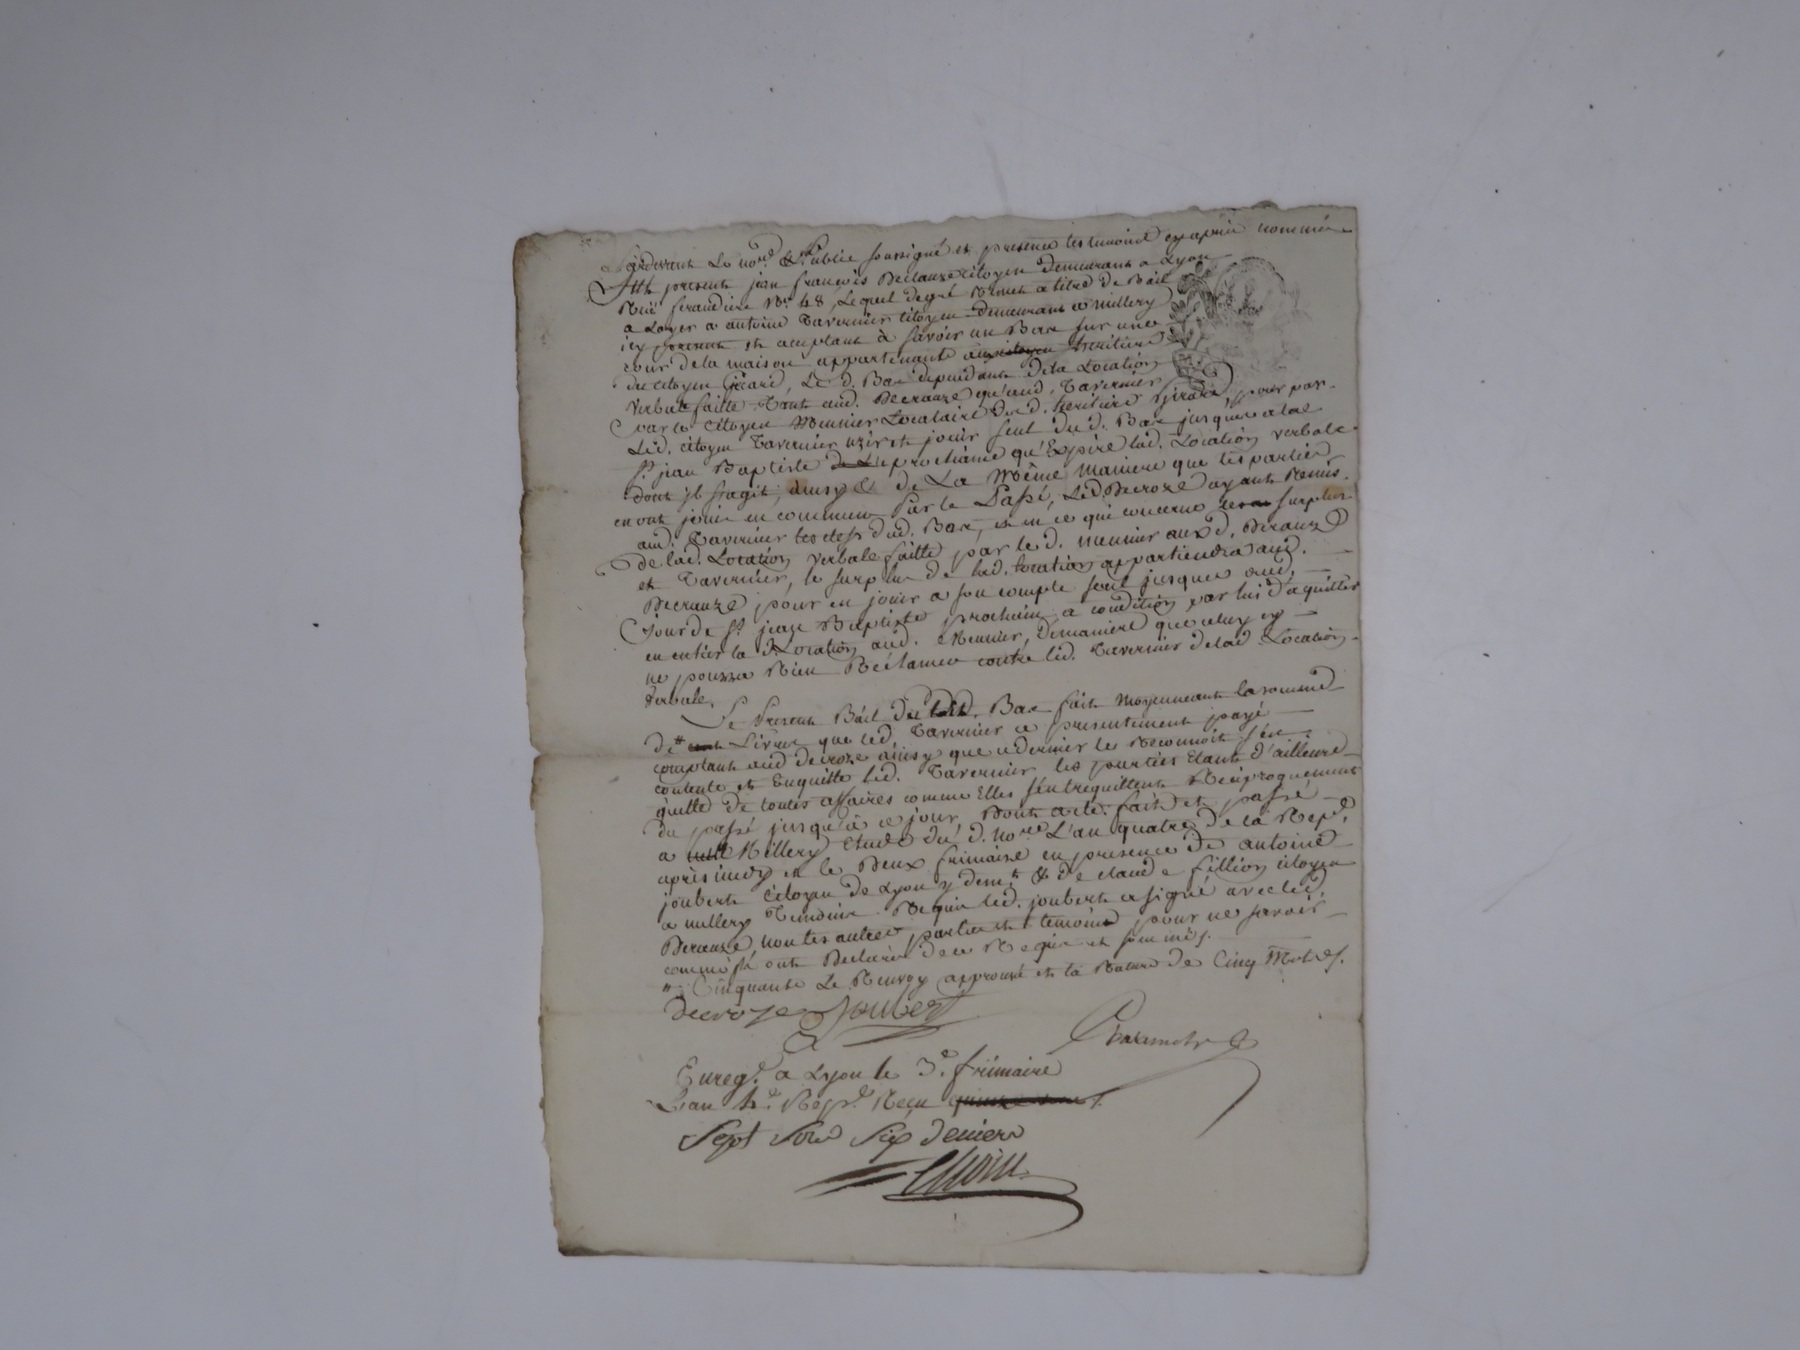 Pardevant Le no.re Public soussigné et presence des temoins cy après nommés
fut present jean françois Decrauze citoyen demeurant a Lyon
Rue ferandiere No. 48, Lequel de gré Remet a titre de Bail
a Loyer a antoine Tavernier citoyen demeurant a millery
icy present et acceptant à savoir un Bac sur une
cour de la maison appartenante aux heritiers
du citoyen Girard, Le d. Bac dependant de la Location
verbale faitte tant aud. Decrauze qu'aud. Tavernier
par le citoyen Meunier Locataire dud. heritiers Girard, pour par
Led. citoyen Tavernier uzer et jouir seul dud. Bac jusques a la
St. jean Baptiste prochaine qu'Expire lad. Location verbale
dont il s'agit, ainsy & de La Même maniere que les parties
en ont joui en commun Par le Passé, Led. Decroze ayant Remis
aud. Tavernier les clefs dud. Bac, et en ce qui concerne le surplus
de lad. Location verbale faitte par le d. meunier aux d. Decrauze
et Tavernier, le surplus de lad. location appartiendra aud.
Decrauze pour en jouir a son compte seul jusques aud.
jour de St. jean Baptiste prochain, a condition par lui d'aquitter
en entier la d. Location aud. Meunier, de maniere que celuy cy
ne pourra Rien Réclamer contre led. Tavernier de lad. Location
verbale.
Le Present Bail du dit Bac fait moyennant la somme
de # Livres que led. Tavernier a presentement payé
comptant aud decroze ainsy que ce dernier le Reconnoit s'en
contente et Enquitte led. Tavernier les parties Etant d'ailleurs
quitte de toutes affaires comme Elles s'entrequittent Réciproquement
du passé jusqu'à ce jour, Dont acte. fait et passé
a Millery Etude du d. no.re L'an quatre de la Rep.e
après midy et le Deux frimaire en presence de antoine
joubert citoyen de Lyon y dem.t & de claude fillion citoyen
a millery Temoins. Requis led. joubert a signé avec led.
Decrauze, non les autres parties et temoins pour ne savoir
comme ils ont Declaré de ce Requis et sommés.
# Cinquante Le Renvoy approuvé et la Rature de Cinq Mots.
decroze Joubert
Enreg.é a Lyon le 3.e frimaire
L'an 4.e Rep.e Reçu
Sept Sous Six deniers